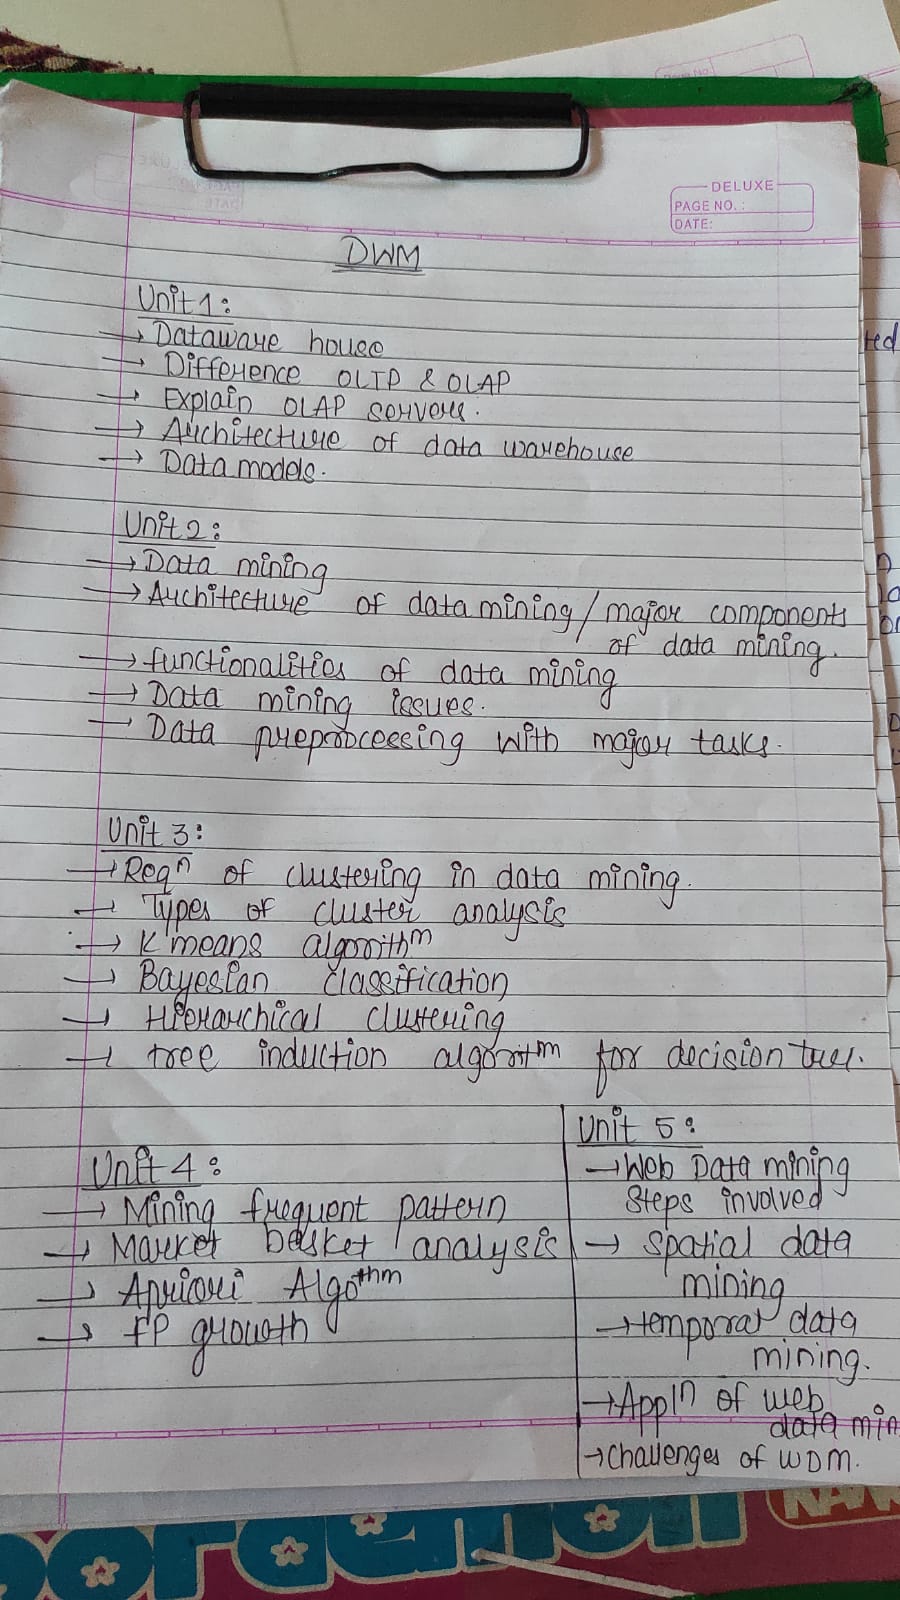 DELUXE
PAGE NO. :
DATE:
DWM
Unit 1:
→ Dataware house
→ Difference OLTP & OLAP
→ Explain OLAP servers.
→ Architecture of data warehouse
→ Data models.
Unit 2:
→ Data mining
→ Architecture of data mining / major components
of data mining.
→ functionalities of data mining
→ Data mining issues.
→ Data preprocessing with major tasks.
Unit 3:
→ Reqn of clustering in data mining.
→ Types of cluster analysis
→ K means algorithm
→ Bayesian classification
→ Hierarchical clustering
→ tree induction algoritm for decision tree.
Unit 4:
→ Mining frequent pattern
→ Market basket analysis
→ Apriori Algothm
→ FP growth
Unit 5:
→ Web Data mining
Steps involved
→ spatial data
mining
→ temporal data
mining.
→ Appln of web
data min
→ challenges of WDM.